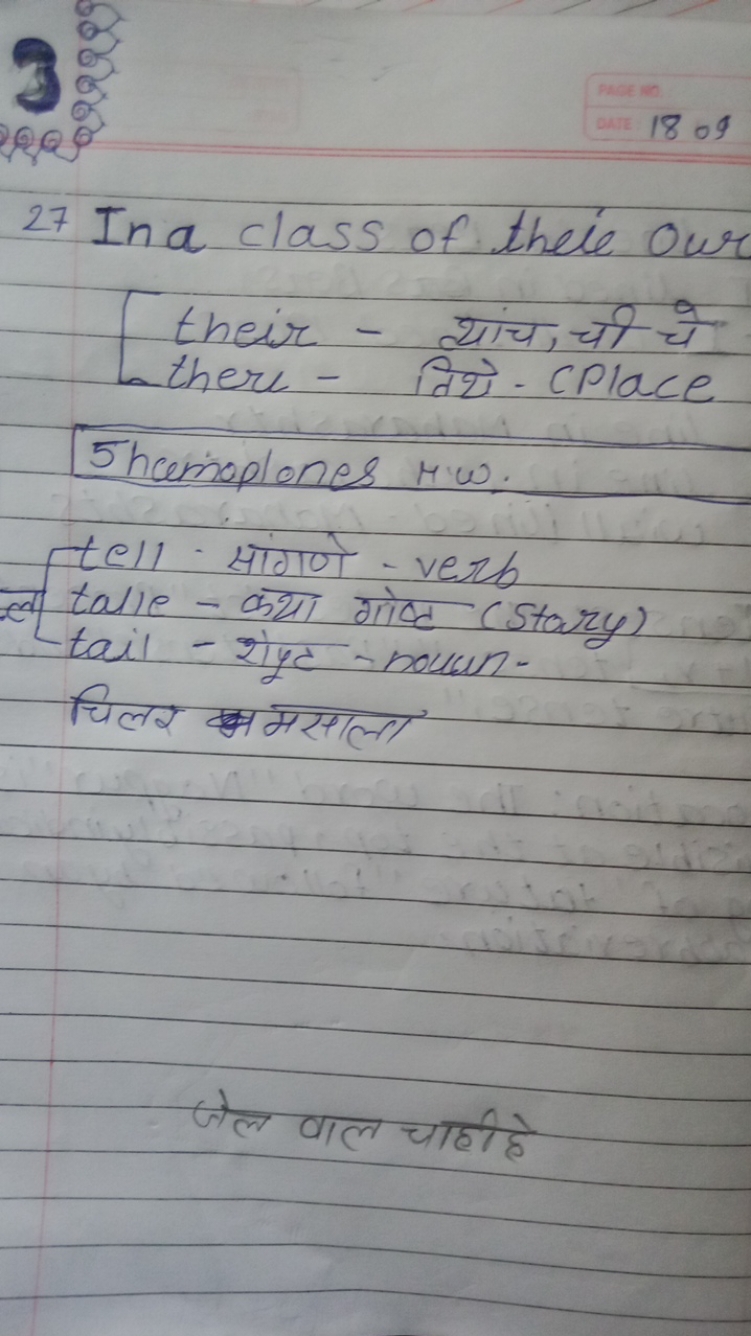 3
PAGE NO.
DATE 18 09
27 In a class of theie Our
their - त्यांच, ची चे
there - तिथे - (Place
5 hoemoplones H.W.
tell - सांगणे - verb
talle - कथा गोष्ट (Stary)
tail - शेपूट - nouun -
चिलर मसाला
जेल वाल चाहीहे